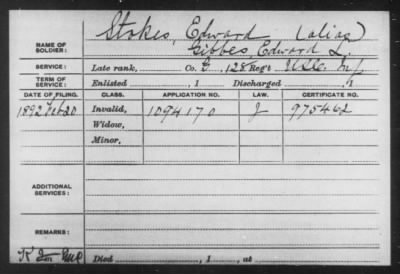 NAME OF SOLDIER: Stokes, Edward (alias)
Gibbes, Edward L.
SERVICE: Late rank, Co. G, 128 Regt U.S.C. Inf
TERM OF SERVICE: Enlisted , 1 Discharged , 1
DATE OF FILING. CLASS. APPLICATION NO. LAW. CERTIFICATE NO.
1892 Feb 20 Invalid, 1094170 J 975462
Widow,
Minor,
ADDITIONAL SERVICES:
REMARKS:
Died , 1 , at